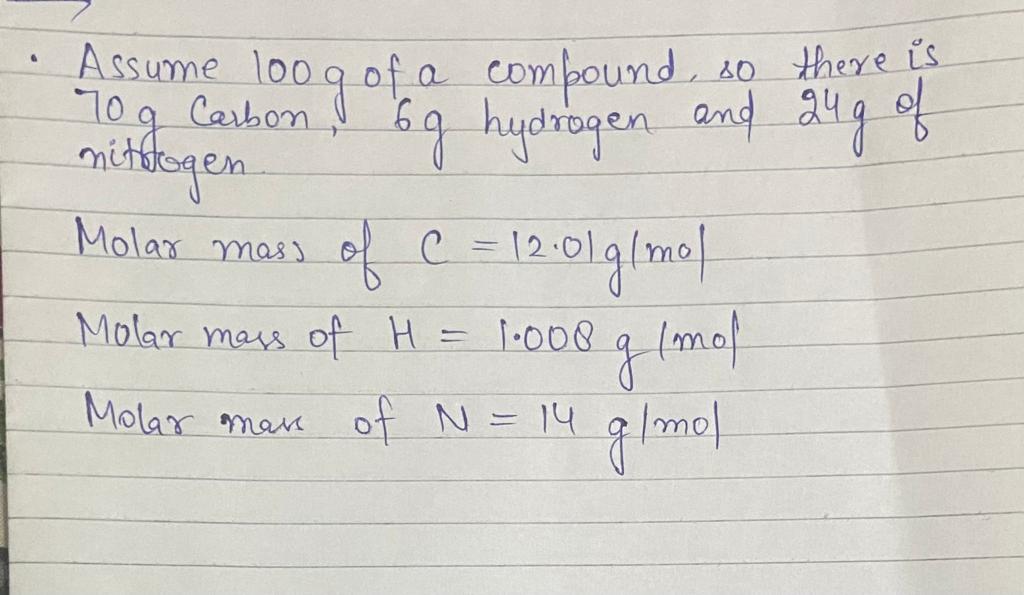 • Assume 100 g of a compound, so there is
70 g Carbon, 6g hydrogen and 24g of
nitrogen
Molar mass of C = 12.01 g/mol
Molar mass of H = 1.008 g/mol
Molar mass of N = 14 g/mol